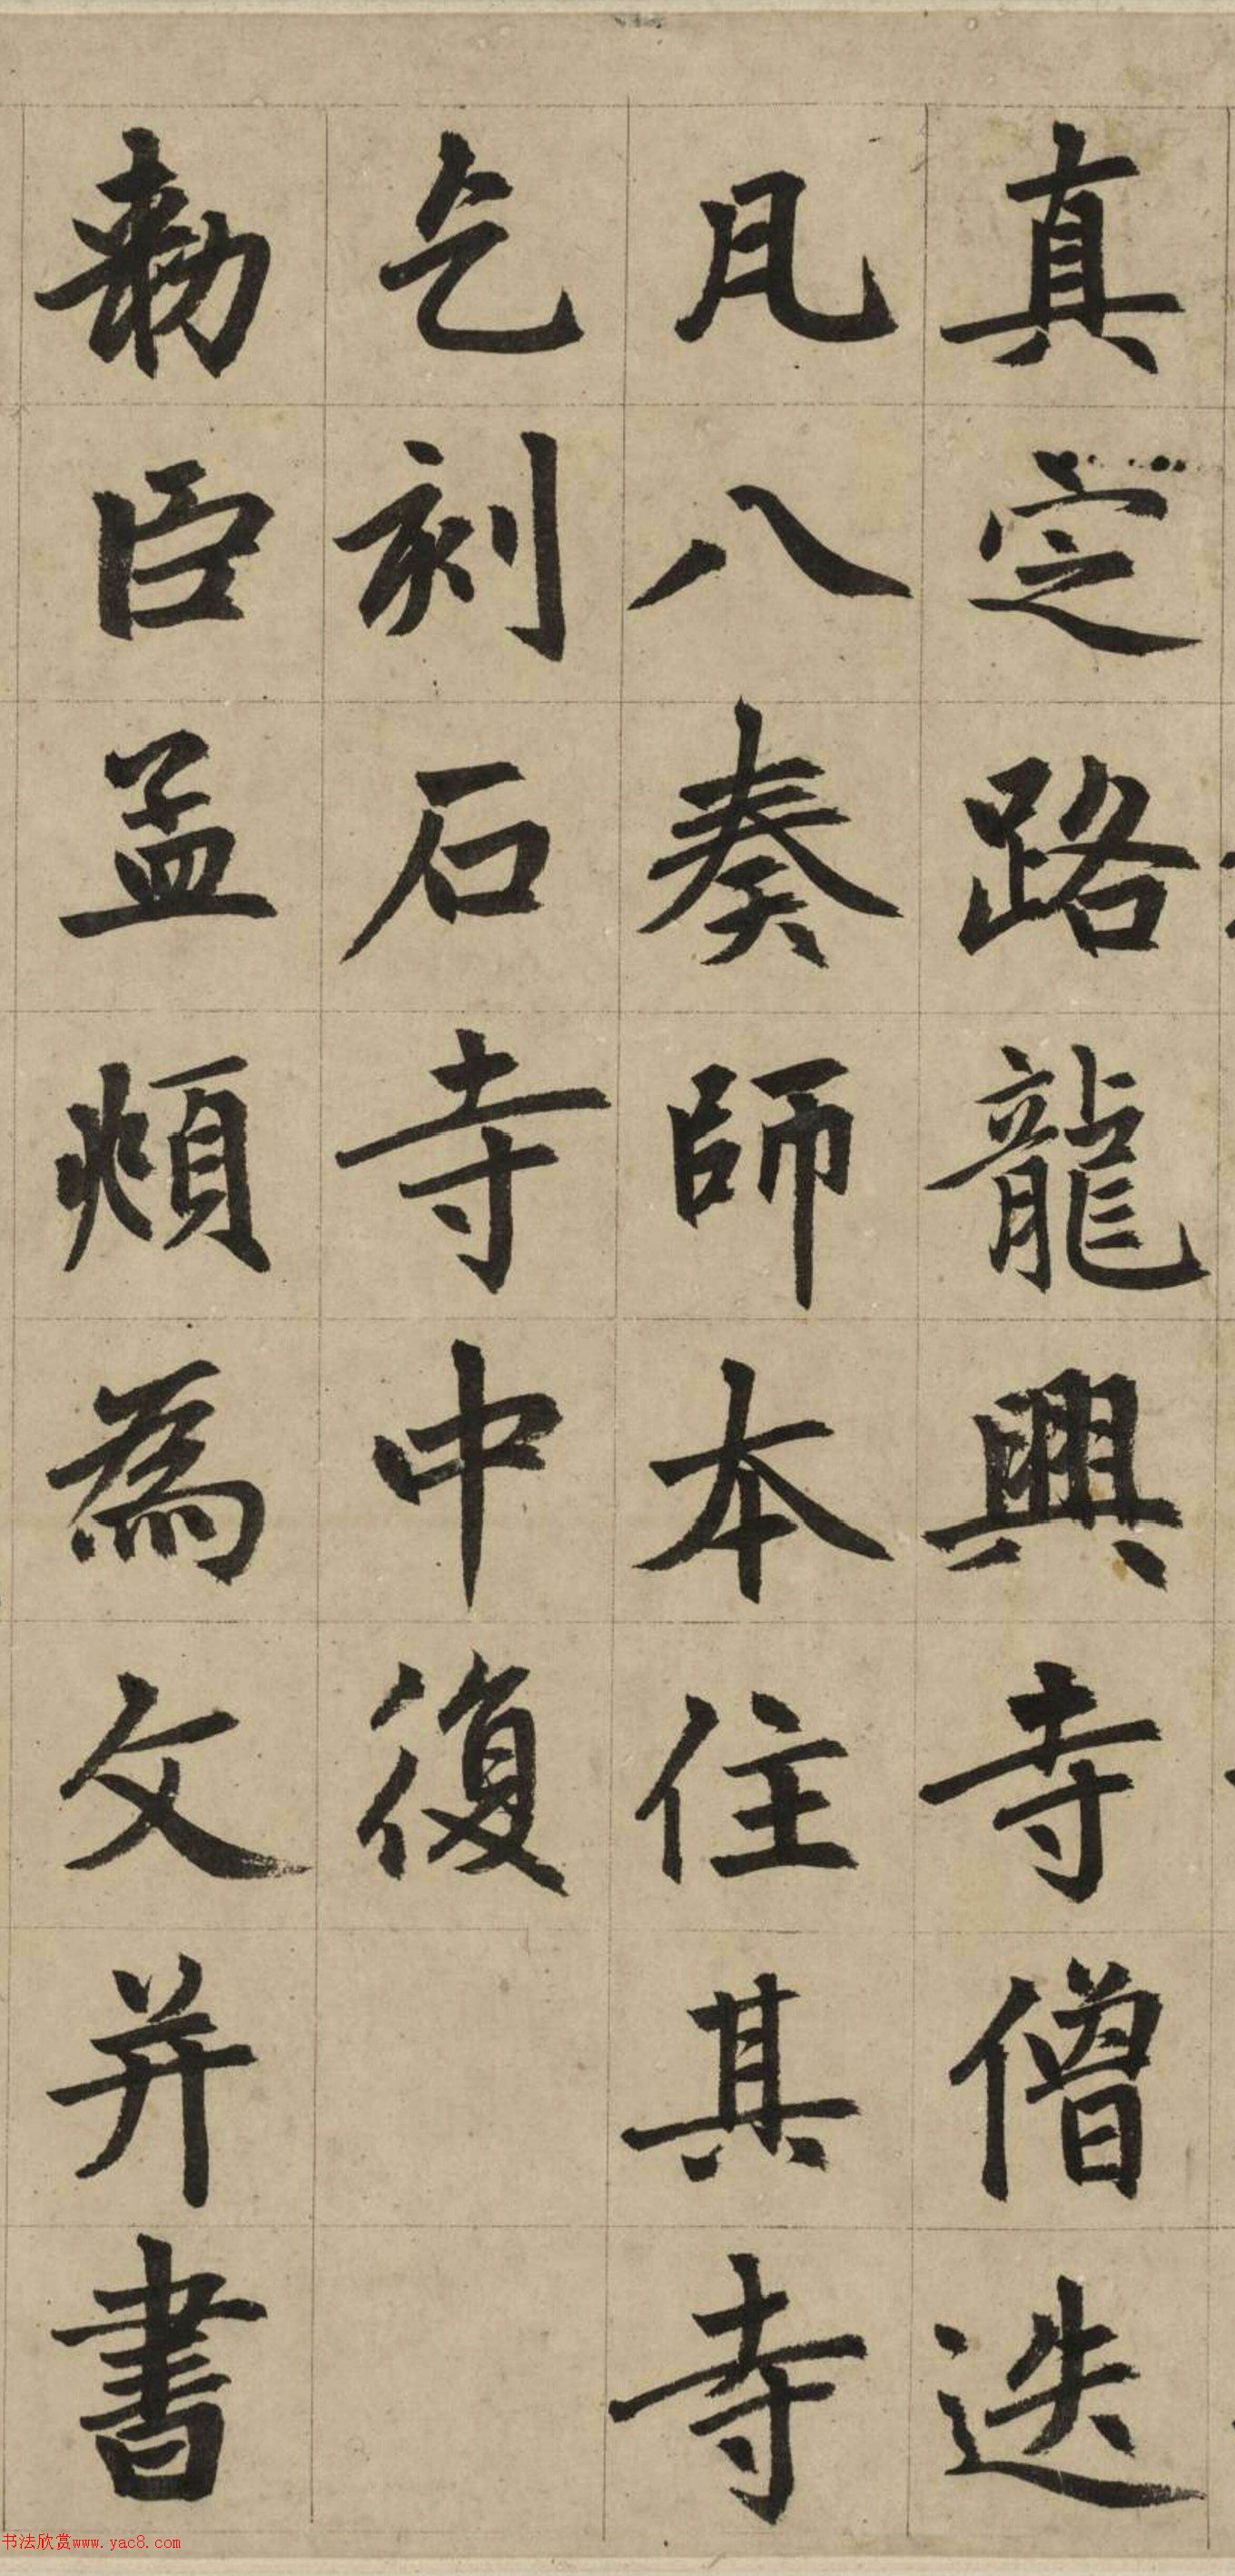 真定路龍興寺僧迭
凡八奏師本住其寺
乞刻石寺中復
勑臣孟頫為文并書
书法欣赏www.yac8.com